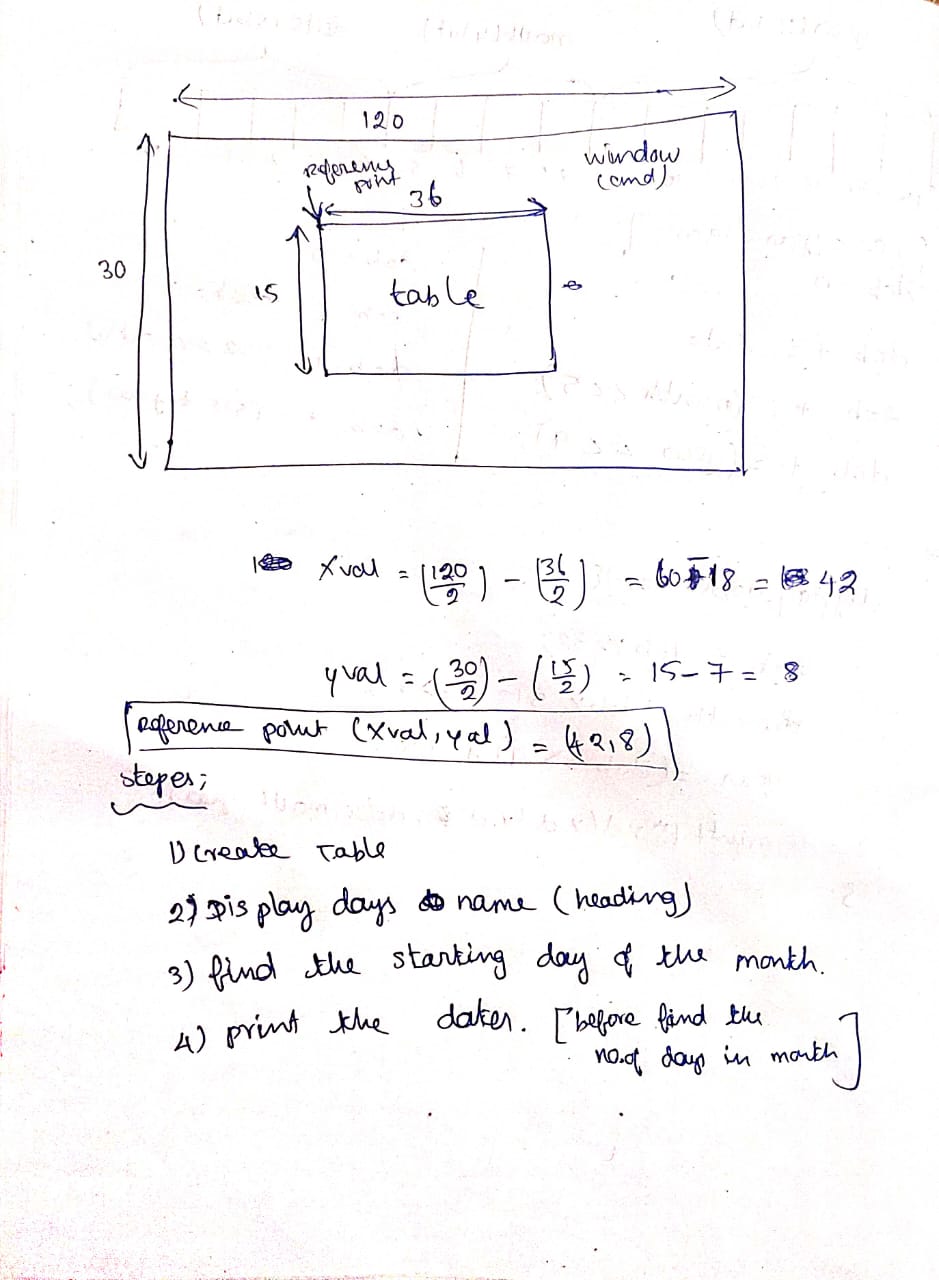 120
window
(cmd)
reference
point
36
30
15
table
xval = (120/2) - (36/2) = 60-18 = 42
yval = (30/2) - (15/2) = 15-7 = 8
reference point (xval, yal) = (42,8)
stepes;
1) create Table
2) Display days name (heading)
3) find the starting day of the month.
4) print the dates. [before find the
no.of days in month]